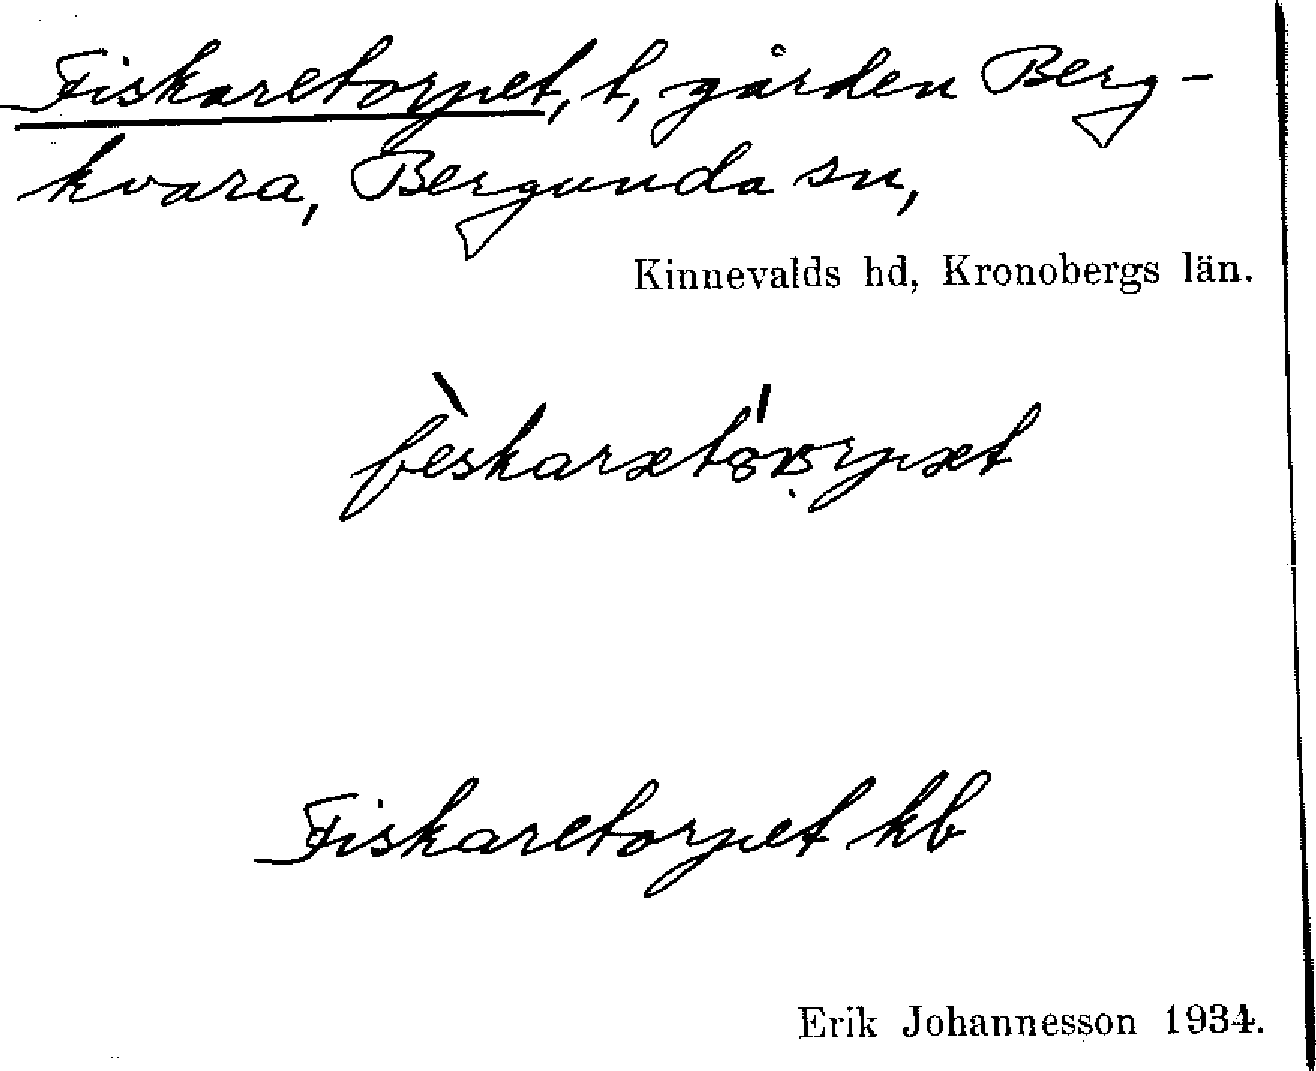 Fiskaretorpet, t, gården Berg-
kvara, Bergunda sn,
Kinnevalds hd, Kronobergs län.
Fiskaretorpet kb
Erik Johannesson 1934.